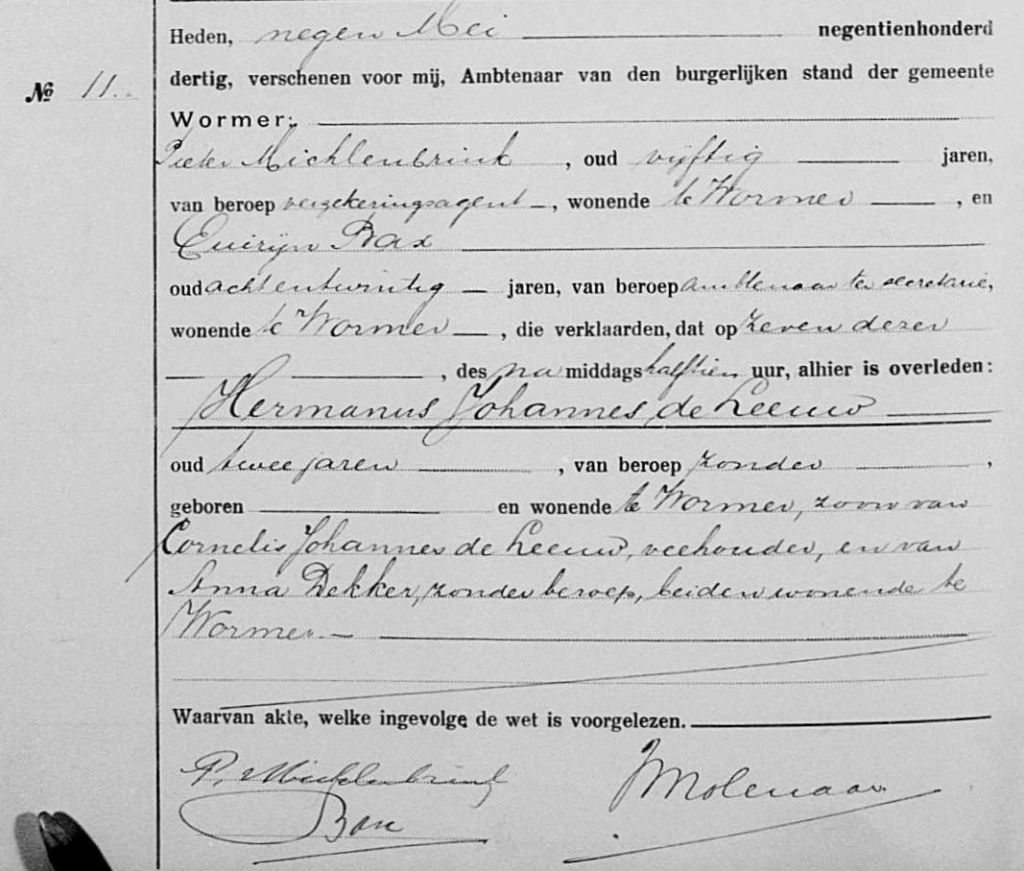 Heden, negen Mei negentienhonderd
No 11. dertig, verschenen voor mij, Ambtenaar van den burgerlijken stand der gemeente
Wormer:
Pieter Michlenbrink, oud vijftig jaren,
van beroep verzekeringsagent, wonende te Wormer, en
Quirijn Bax
oud achtentwintig jaren, van beroep ambtenaar ter secretarie,
wonende te Wormer, die verklaarden, dat op zeven dezer
, des na middags half tien uur, alhier is overleden:
Hermanus Johannes de Leeuw
oud twee jaren, van beroep zonder,
geboren en wonende te Wormer, zoon van
Cornelis Johannes de Leeuw, veehouder, en van
Anna Dekker, zonder beroep, beiden wonende te
Wormer.
Waarvan akte, welke ingevolge de wet is voorgelezen.
P. Michlenbrink Molenaar
Bax